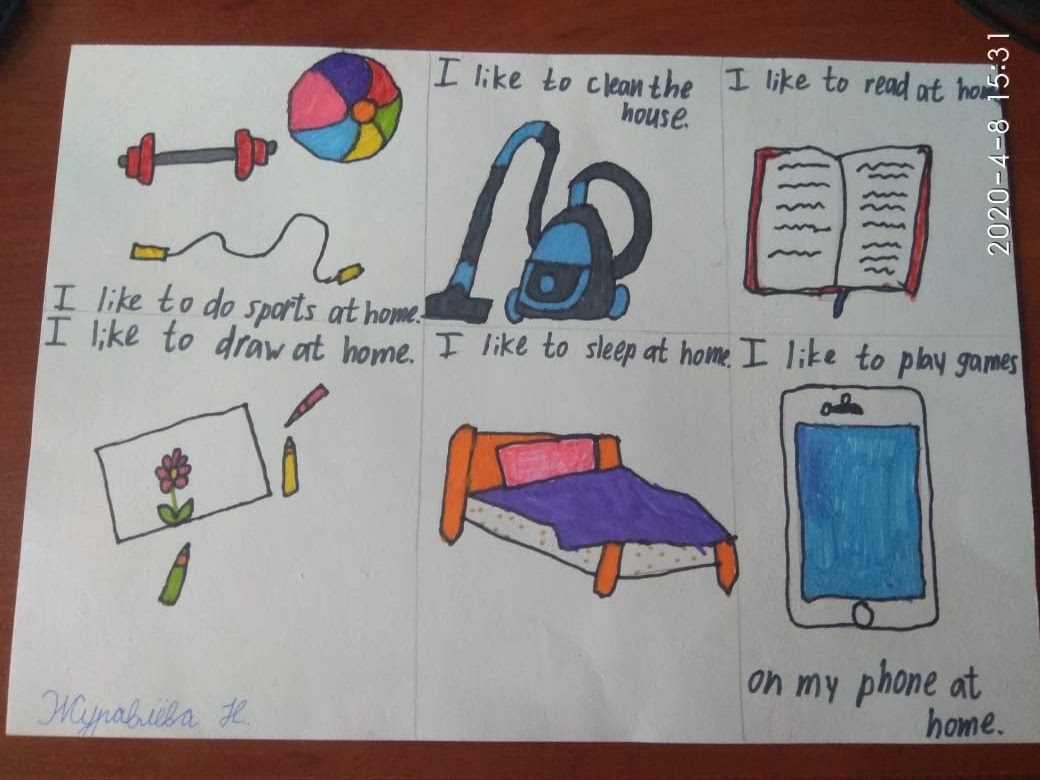 I like to do sports at home.
I like to clean the
house.
I like to read at hom
I like to draw at home.
I like to sleep at home.
I like to play games
on my phone at
home.
Журавлёва Н.
2020-4-8 15:31